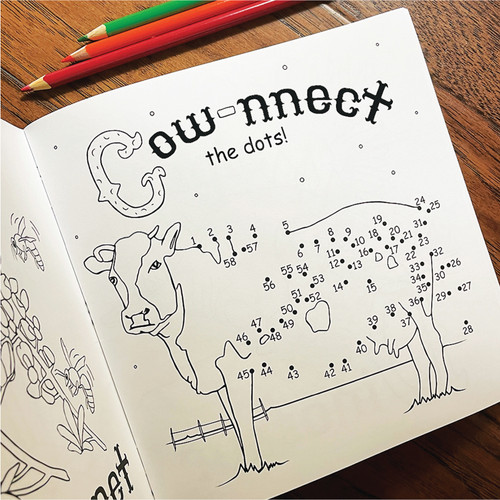 Cow-nnect
the dots!
24
25
5
18
19
1
2
3
4
8
9
20
21
31
6
7
11
10
16
17
22
23
58
57
12
13
18
32
33
30
26
56
55
54
53
14
15
34
35
29
27
50
51
52
36
49
48
47
46
39
38
37
28
40
45
44
43
42
41
net